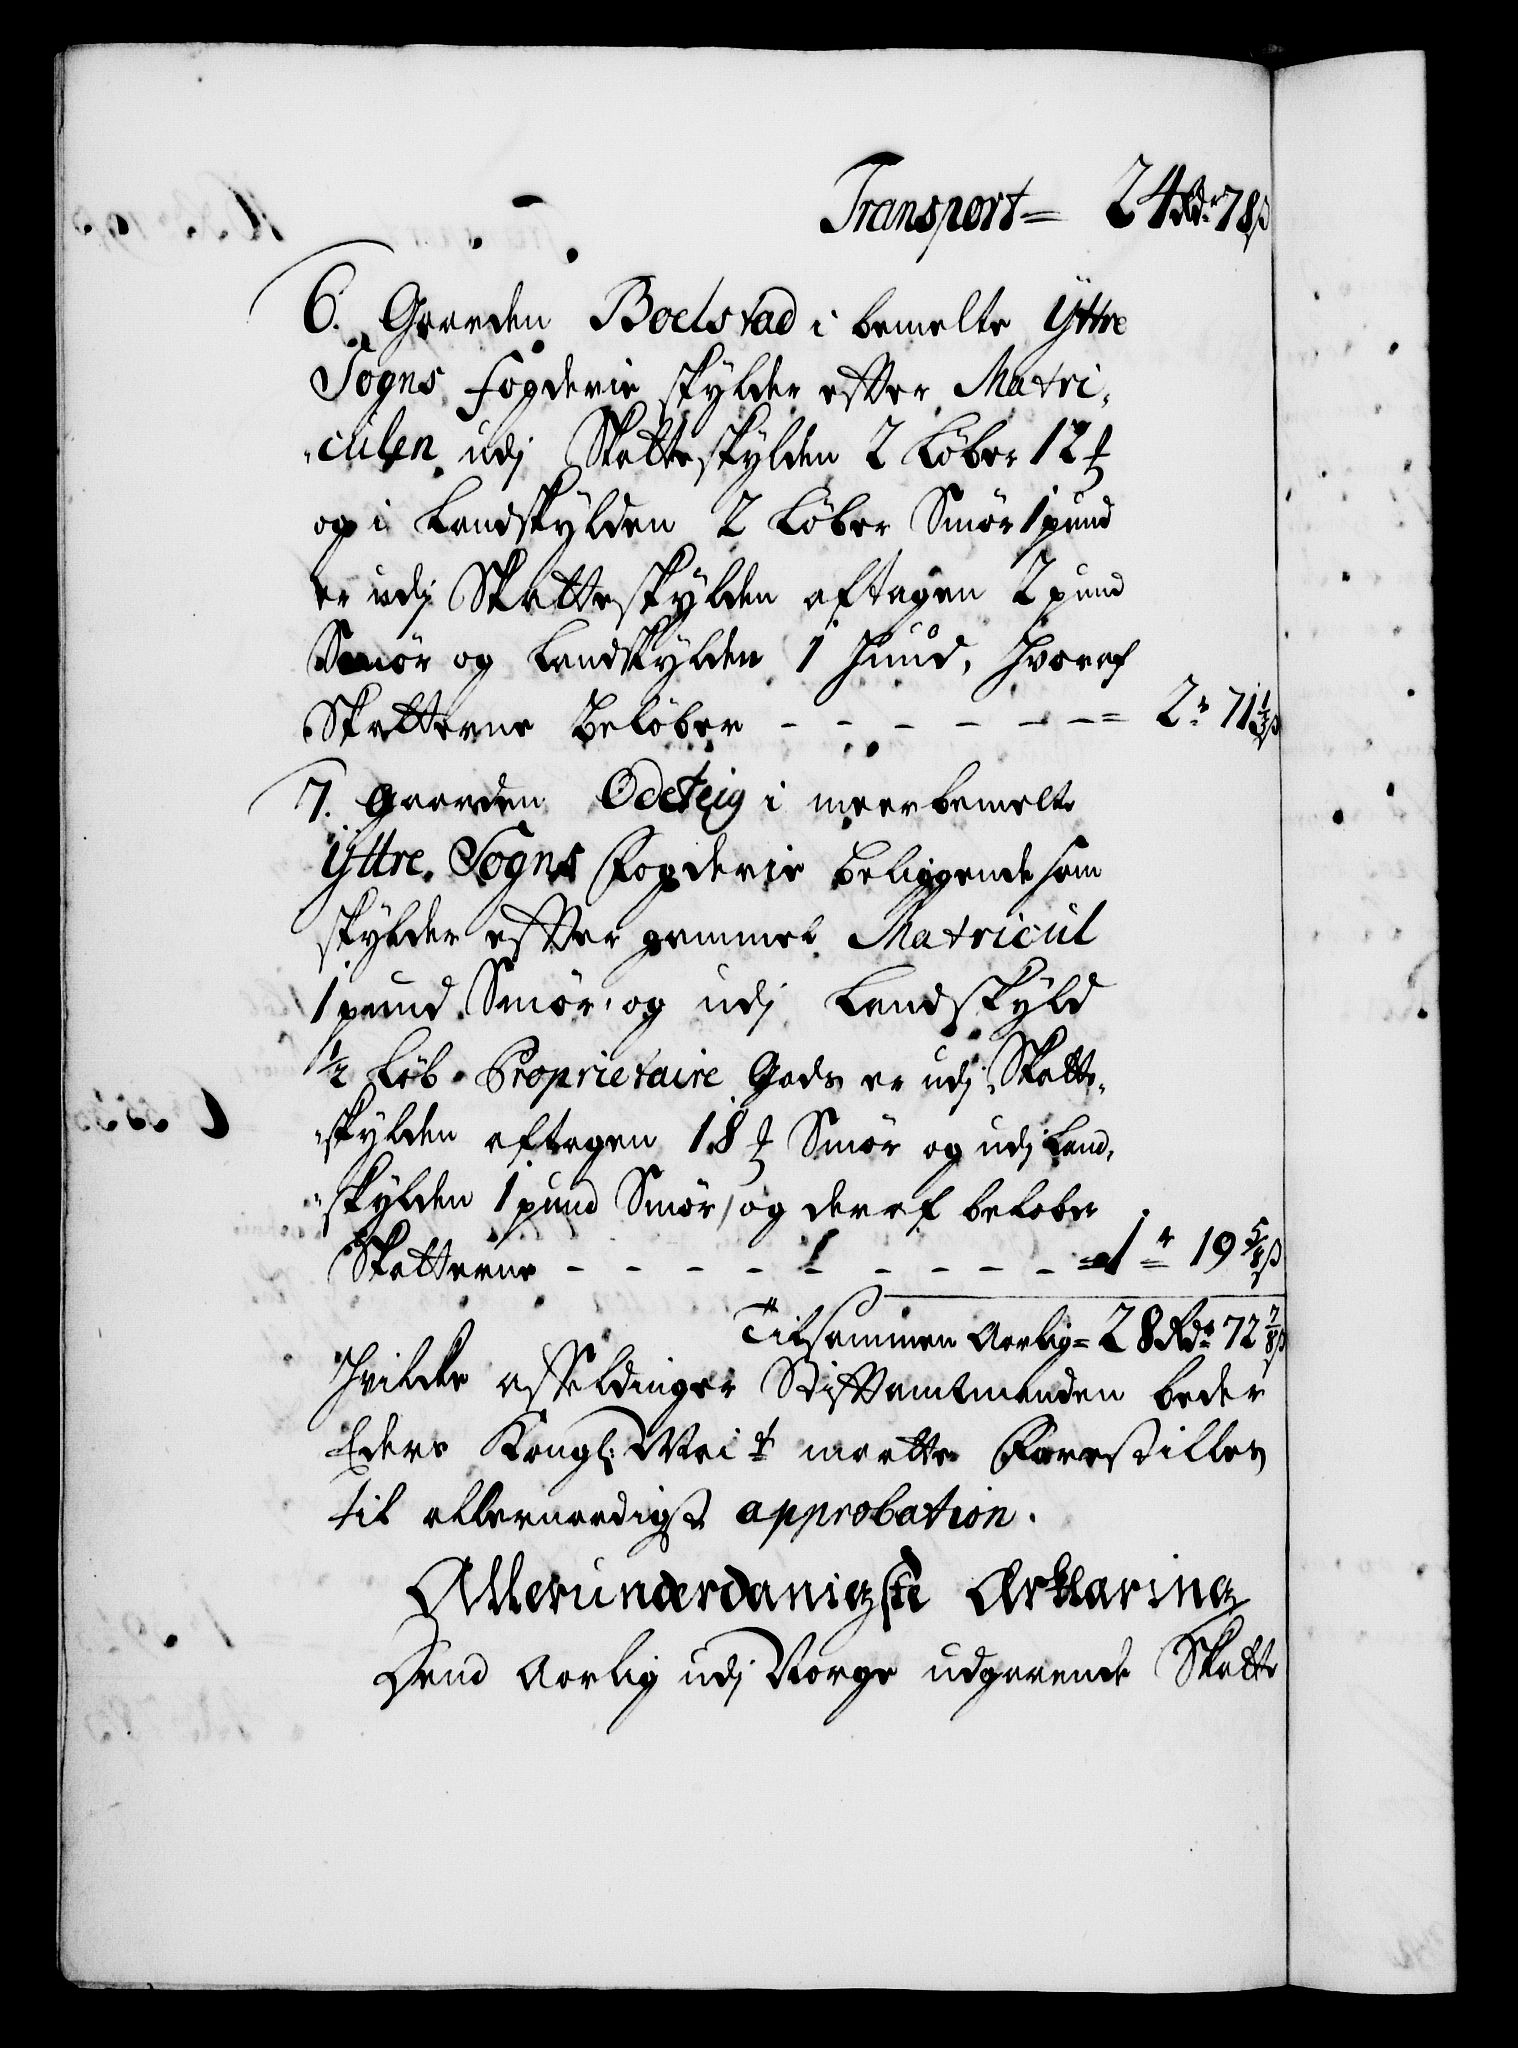 Transport = 24 Rdr 78 ß
6. Gaarden Boelstad i bemelte Yttre
Sogns Fogderie skylder efter Matri-
culen udj Skatteskylden 2 Løber 12 ℔
og i Landskylden 2 Løber Smør 1 pund
er udj Skatteskylden aftagen 2 pund
Smør og Landskylden 1 Huud, hvoraf
Skatterne beløber - - - - - - - = 2 r 71 1/4 ß
7. Gaarden Odeteig i meerbemelte
Yttre Sogns Fogderie beliggende som
skylder efter gammel Matricul
1 pund Smør, og udj Landskyld
1/2 Løb Proprietaire Gods er udj Skatte-
skylden aftagen 18 ℔ Smør og udj Land-
skylden 1 pund Smør, og deraf beløber
Skatterne - - - - - - - - - = 1 r = 19 5/8 ß
Tilsammen Aarlig = 28 Rdr 72 7/8 ß
Hvilcke affeldinger Stiftamtmanden beder
Eders Kongl: Mait maatte Forestilles
til allernaadigst approbation.
Allerunderdanigste Erklæring
Dend Aarlig udj Norge udgaaende Skatte